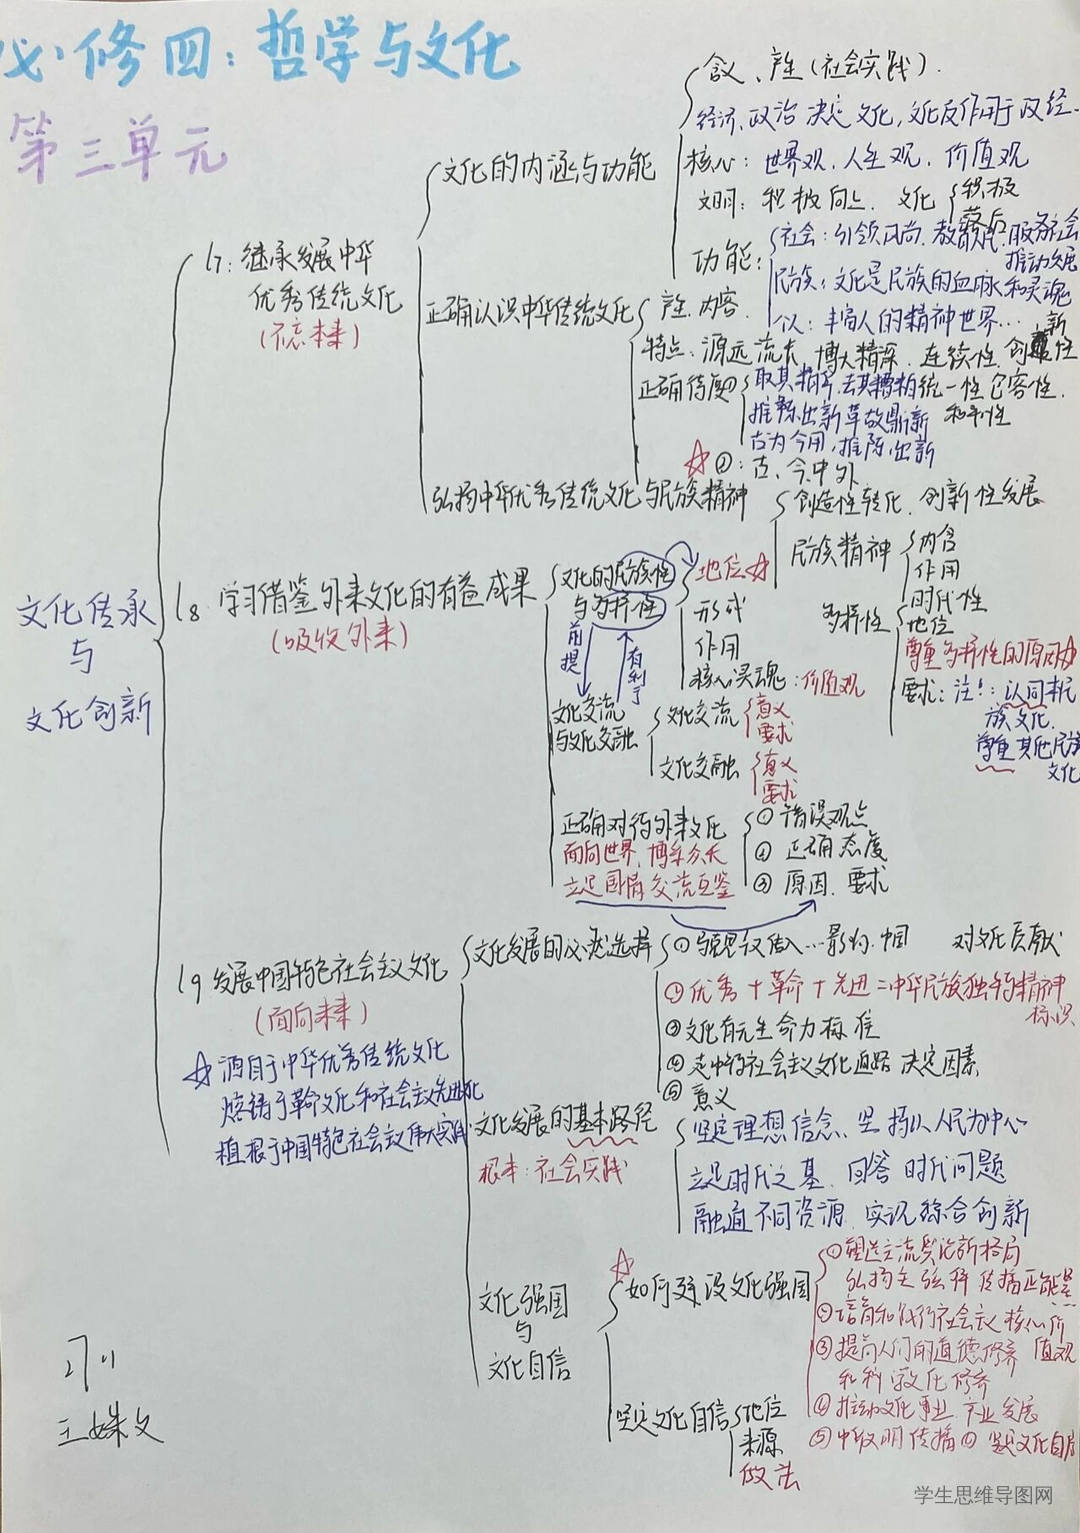 必修四：哲学与文化
第三单元
文化传承
与
文化创新
L7：继承发展中华
优秀传统文化
(不忘本来)
文化的内涵与功能
含义、产生(社会实践).
经济、政治决定文化,文化反作用于政经.
核心：世界观.人生观.价值观
文明：积极向上.文化
积极
落后
功能：
社会：引领风尚.教育人民.服务社会
推动发展
民族：文化是民族的血脉和灵魂
个人：丰富人的精神世界...
正确认识中华传统文化
产生.内容.
特点.源远流长 博大精深.连续性.创新性
统一性 包容性.
和平性
正确待度①
取其精华,去其糟粕
推陈出新 革故鼎新
古为今用,推陈出新
☆②：古、今.中.外
弘扬中华优秀传统文化与民族精神
创造性转化.创新性发展
民族精神
内含
作用
时代性
L8.学习借鉴外来文化的有益成果
(吸收外来)
文化的民族性
与多样性
地位☆
形成
作用
核心灵魂：价值观
多样性
地位
尊重多样性的原因☆
要求：注!：认同本民
族文化.
尊重其他民族
文化
前提
有利于
文化交流
与文化交融
文化交流
意义
要求
文化交融
意义
要求
正确对待外来文化
面向世界,博采众长
立足国情 交流互鉴
① 错误观点
② 正确态度
③ 原因.要求
L9 发展中国特色社会主义文化
(面向未来)
☆源自于中华优秀传统文化
熔铸于革命文化和社会主义先进文化
植根于中国特色社会主义伟大实践
文化发展的必然选择
①马思议传入...影响.中国 对文化贡献
②优秀+革命+先进=中华民族独特精神
标识
③文化有无生命力标准
④走中特社会主义文化道路 决定因素
⑤ 意义
文化发展的基本路径
根本：社会实践
坚定理想信念、坚持以人民为中心
立足时代之基.回答时代问题
融通不同资源.实现综合创新
文化强国
与
文化自信
☆
如何建设文化强国
①塑造主流舆论新格局
弘扬主旋律 传播正能量
②培育和践行社会主义核心价
值观
③提高人们的道德修养
和科学文化修养
④推动文化事业.产业发展
⑤中华文明传播⑥坚定文化自信
坚定文化自信
地位
来源
做法
王姝文
学生思维导图网